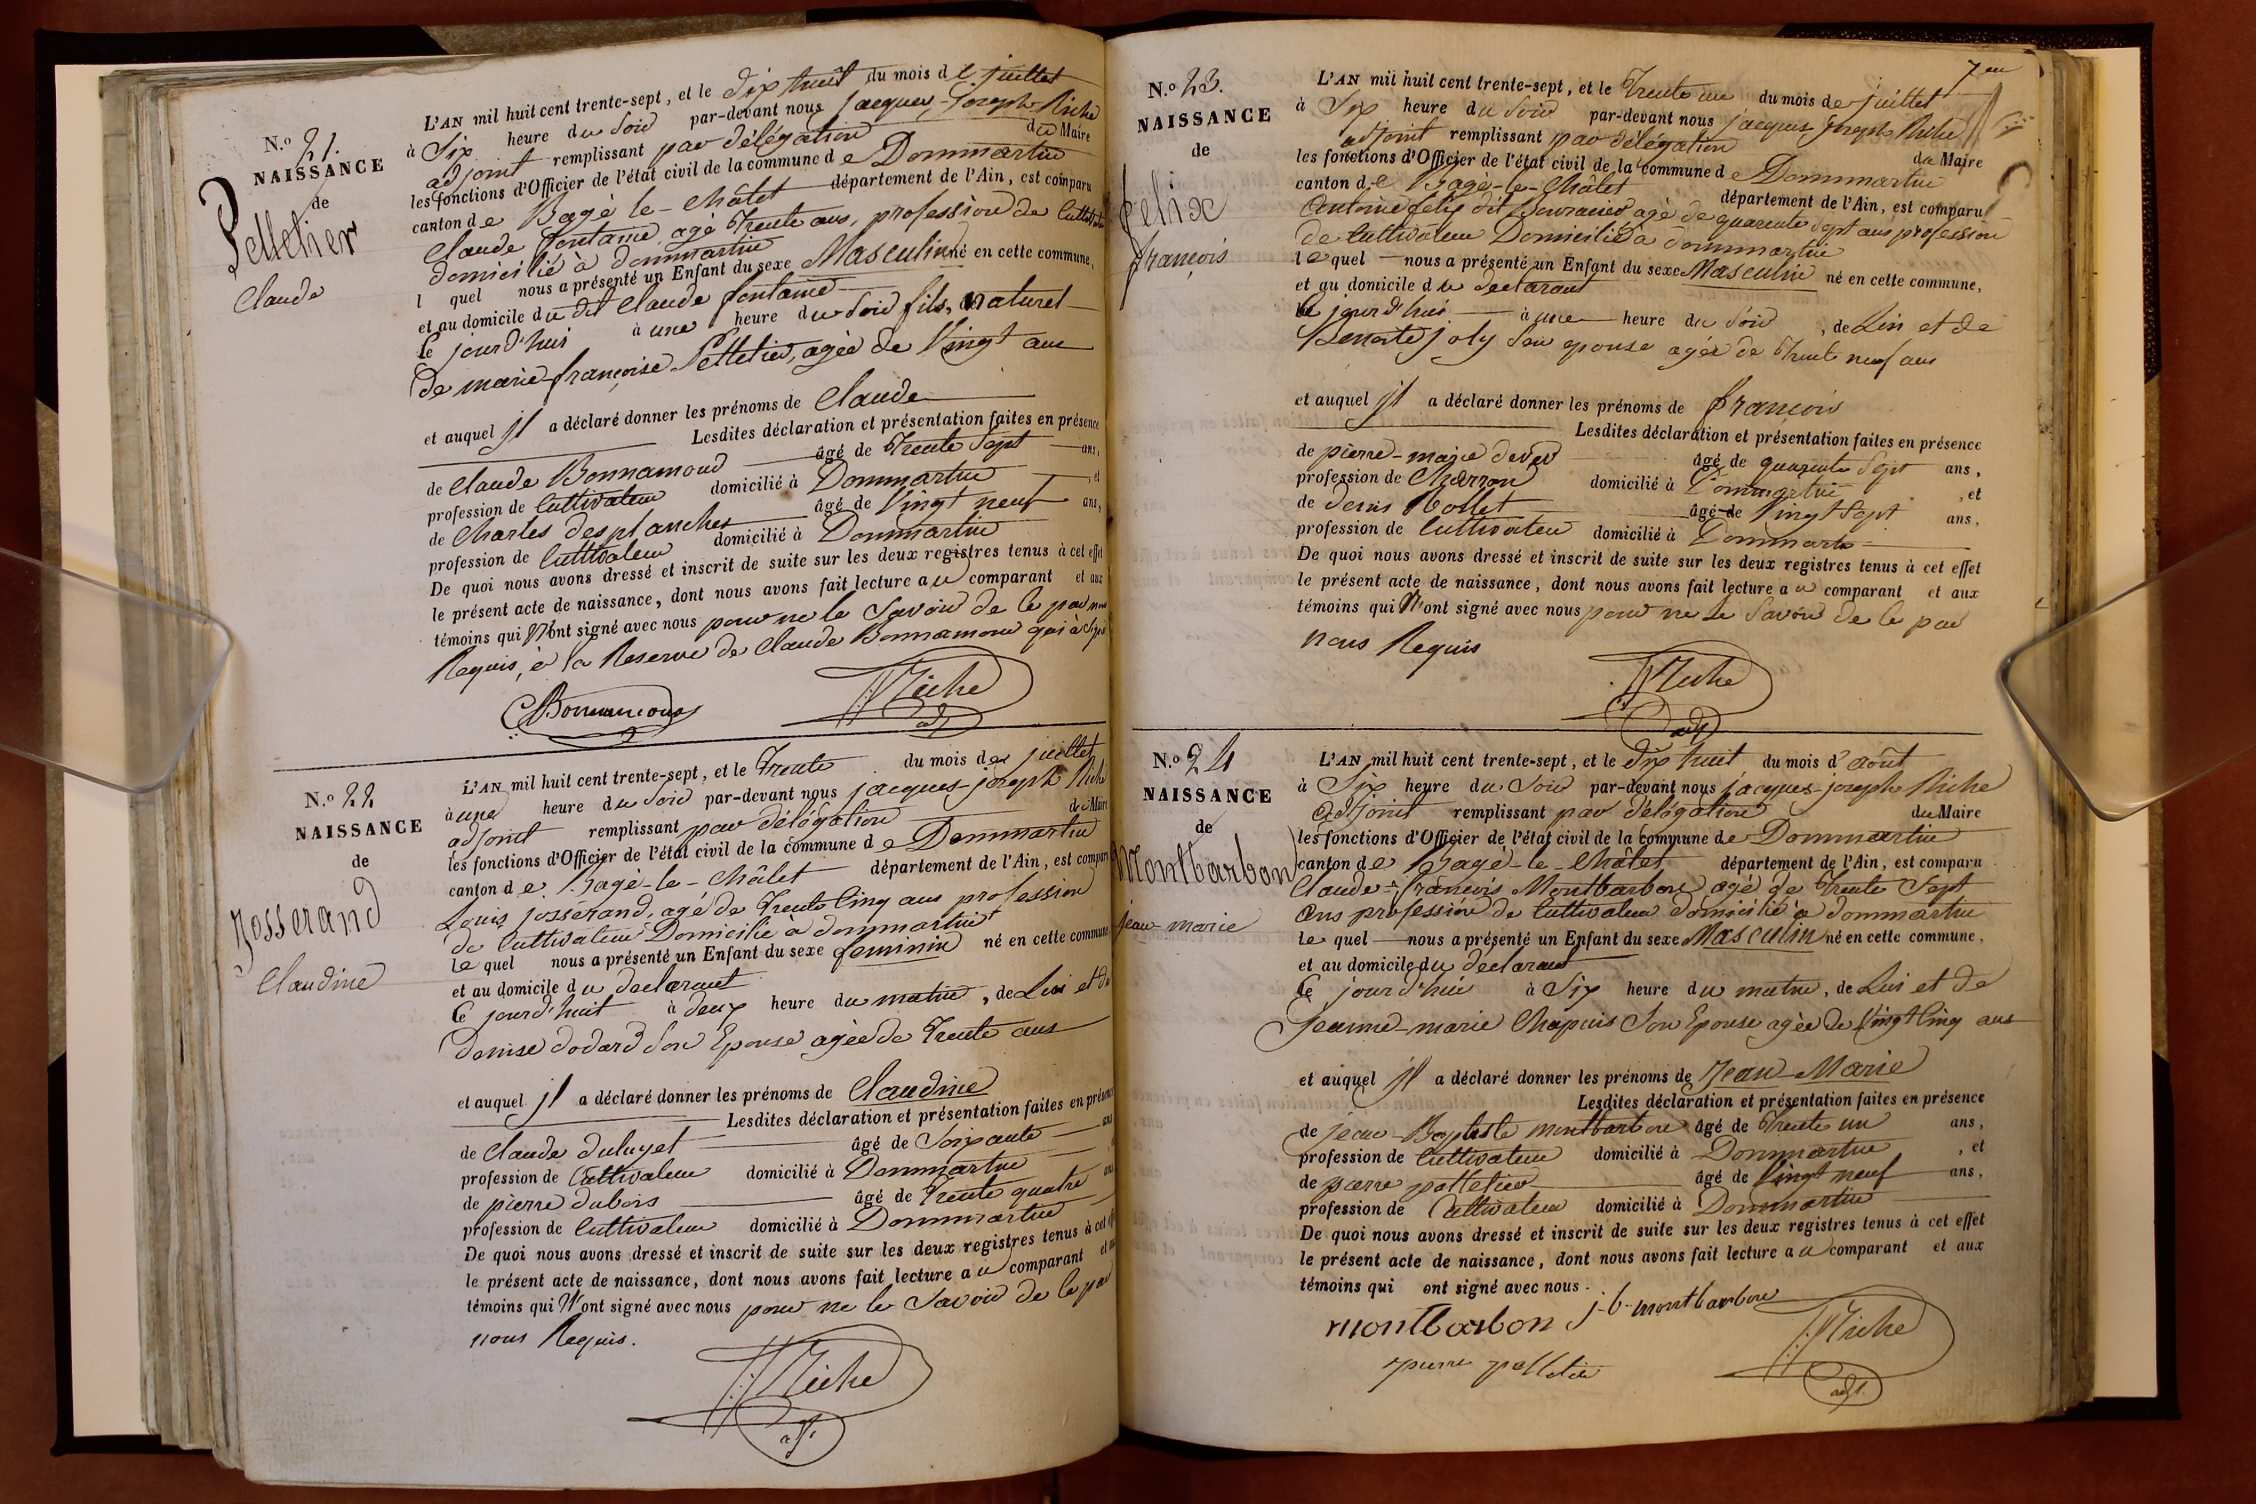 N.º 21.
NAISSANCE
de
Pelletier
Claude
L'AN mil huit cent trente-sept, et le dix huit du mois de juillet
à Six heure du Soir par-devant nous jacques-joseph Riche
adjoint remplissant par délégation du Maire
les fonctions d'Officier de l'état civil de la commune de Dommartin
canton de Bagé-le-Châtel département de l'Ain, est comparu
Claude fontaine agé Trente ans, profession de Cultivateur
domicilié à dommartin
l quel nous a présenté un Enfant du sexe Masculin né en cette commune,
et au domicile du dit Claude fontaine
Ce jourd'hui à une heure du Soir fils naturel
de marie-françoise Pelletier, agée de Vingt ans
et auquel jl a déclaré donner les prénoms de Claude
Lesdites déclaration et présentation faites en présence
de Claude Bonnamour âgé de Trente Sept ans,
profession de Cultivateur domicilié à Dommartin , et
de Charles desplanches âgé de Vingt neuf ans,
profession de Cultivateur domicilié à Dommartin
De quoi nous avons dressé et inscrit de suite sur les deux registres tenus à cet effet
le présent acte de naissance, dont nous avons fait lecture au comparant et aux
témoins qui N'ont signé avec nous pour ne le Savoir de le par nous
Requis, à la Reserve de Claude Bonnamour qui à Signé
CBonnamour Riche
adj.
N.º 22
NAISSANCE
de
Josserand
Claudine
L'AN mil huit cent trente-sept, et le Trente du mois de juillet
à une heure du Soir par-devant nous jacques-joseph Riche
adjoint remplissant par délégation du Maire
les fonctions d'Officier de l'état civil de la commune de Dommartin
canton de Bagé-le-Châtel département de l'Ain, est comparu
Louis josserand, agé de Trente Cinq ans profession
de Cultivateur Domicilié à dommartin
le quel nous a présenté un Enfant du sexe feminin né en cette commune
et au domicile du declarant
Ce jourd'huit à deux heure du matin, de Lui et de
denise dodard Son Epouse agée de Trente ans
et auquel jl a déclaré donner les prénoms de Claudine
Lesdites déclaration et présentation faites en présence
de Claude duluyet âgé de Soixante ans
profession de Cultivateur domicilié à Dommartin
de pierre dubois âgé de Trente quatre ans
profession de Cultivateur domicilié à Dommartin
De quoi nous avons dressé et inscrit de suite sur les deux registres tenus à cet effet
le présent acte de naissance, dont nous avons fait lecture au comparant et aux
témoins qui N'ont signé avec nous pour ne le Savoir de le par
nous Requis.
Riche
adj.
7 eu
N.º 23.
NAISSANCE
de
felix
françois
L'AN mil huit cent trente-sept, et le Trente un du mois de juillet
à Six heure du Soir par-devant nous jacques joseph Riche
adjoint remplissant par délégation du Maire
les fonctions d'Officier de l'état civil de la commune de Dommartin
canton de Bagé-le-Châtel département de l'Ain, est comparu
Antoine felix dit agé de quarente Sept ans profession
de Cultivateur Domicilié à dommartin
le quel nous a présenté un Enfant du sexe Masculin né en cette commune,
et au domicile du declarant
Ce jourd'hui à une heure du Soir , de Lui et de
Benoite joly Son epouse agée de Trente neuf ans
et auquel jl a déclaré donner les prénoms de françois
Lesdites déclaration et présentation faites en présence
de pierre-marie âgé de quarente Sept ans,
profession de Charron domicilié à Dommartin , et
de denis Rollet âgé de Vingt Sept ans,
profession de Cultivateur domicilié à Dommartin
De quoi nous avons dressé et inscrit de suite sur les deux registres tenus à cet effet
le présent acte de naissance, dont nous avons fait lecture au comparant et aux
témoins qui N'ont signé avec nous pour ne le Savoir de le par
nous Requis
Riche
adj
N.º 24
NAISSANCE
de
Montbarbon
jean marie
L'AN mil huit cent trente-sept, et le dix huit du mois d'août
à Six heure du Soir par-devant nous jacques-joseph Riche
adjoint remplissant par délégation du Maire
les fonctions d'Officier de l'état civil de la commune de Dommartin
canton de Bagé-le-Châtel département de l'Ain, est comparu
Claude-françois Montbarbon agé de Trente Sept
ans profession de Cultivateur domicilié à dommartin
le quel nous a présenté un Enfant du sexe Masculin né en cette commune,
et au domicile du declarant
Ce jourd'hui à Six heure du matin, de Lui et de
Jeanne-marie Chapuis Son Epouse agée de Vingt Cinq ans
et auquel jl a déclaré donner les prénoms de Jean-Marie
Lesdites déclaration et présentation faites en présence
de jean-Baptiste montbarbon âgé de Trente un ans,
profession de Cultivateur domicilié à Dommartin , et
de pierre pelletier âgé de Vingt neuf ans,
profession de Cultivateur domicilié à Dommartin
De quoi nous avons dressé et inscrit de suite sur les deux registres tenus à cet effet
le présent acte de naissance, dont nous avons fait lecture au comparant et aux
témoins qui ont signé avec nous.
montbarbon j-b-montbarbon Riche
pierre pelletier adj.